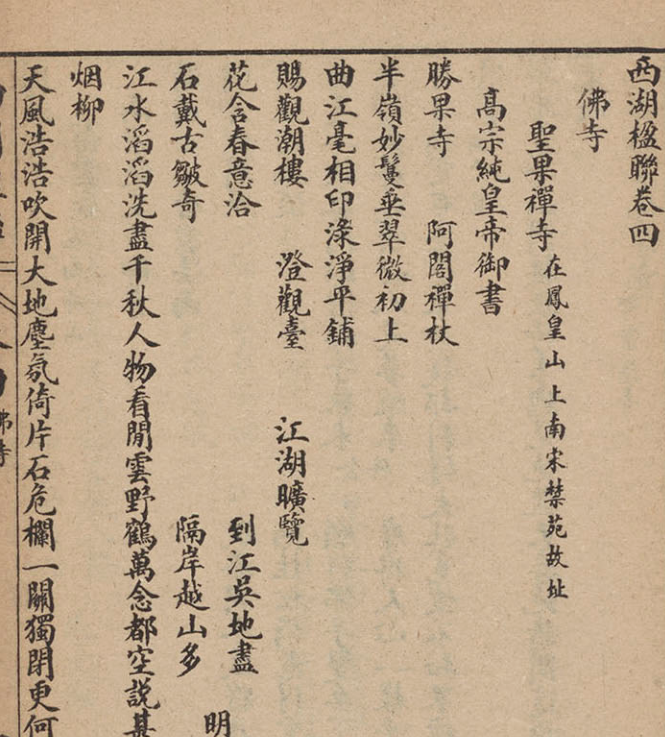 西湖楹聯卷四
佛寺
聖果禪寺在鳳皇山上南宋禁苑故址
高宗純皇帝御書
勝果寺 阿閣禪枝
半嶺妙鬘垂翠微初上
曲江毫相印淥淨平鋪
賜觀潮樓 澄觀臺 江湖曠覽
花含春意洽 到江吳地盡
石戴古皴奇 隔岸越山多
明
江水滔滔洗盡千秋人物看閒雲野鶴萬念都空説甚
烟柳
天風浩浩吹開大地塵氛倚片石危欄一關獨閉更何
佛寺